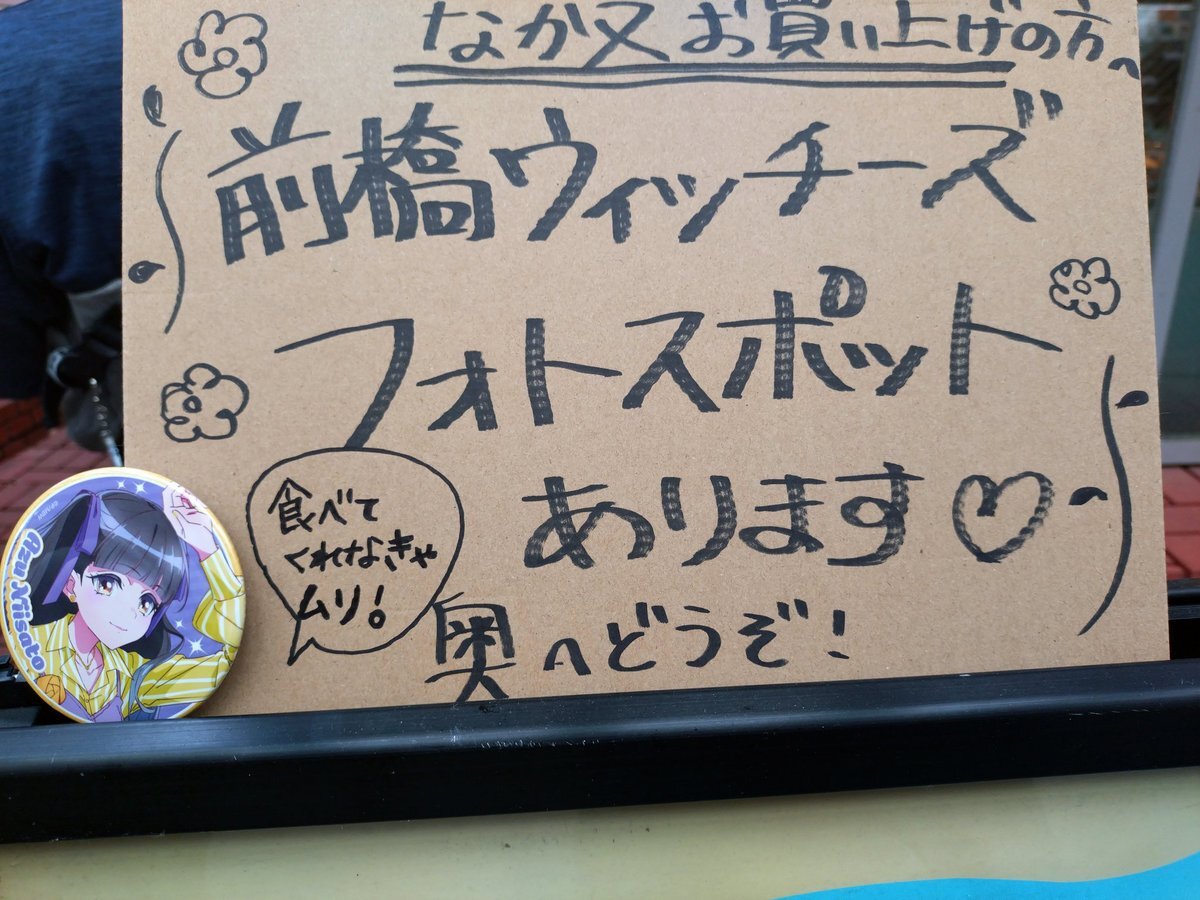 なか又お買い上げの方へ
前橋ウィッチーズ
フォトスポット
あります♡
食べて
くれなきゃ
ムリ!
奥へどうぞ!
Azu Niisato